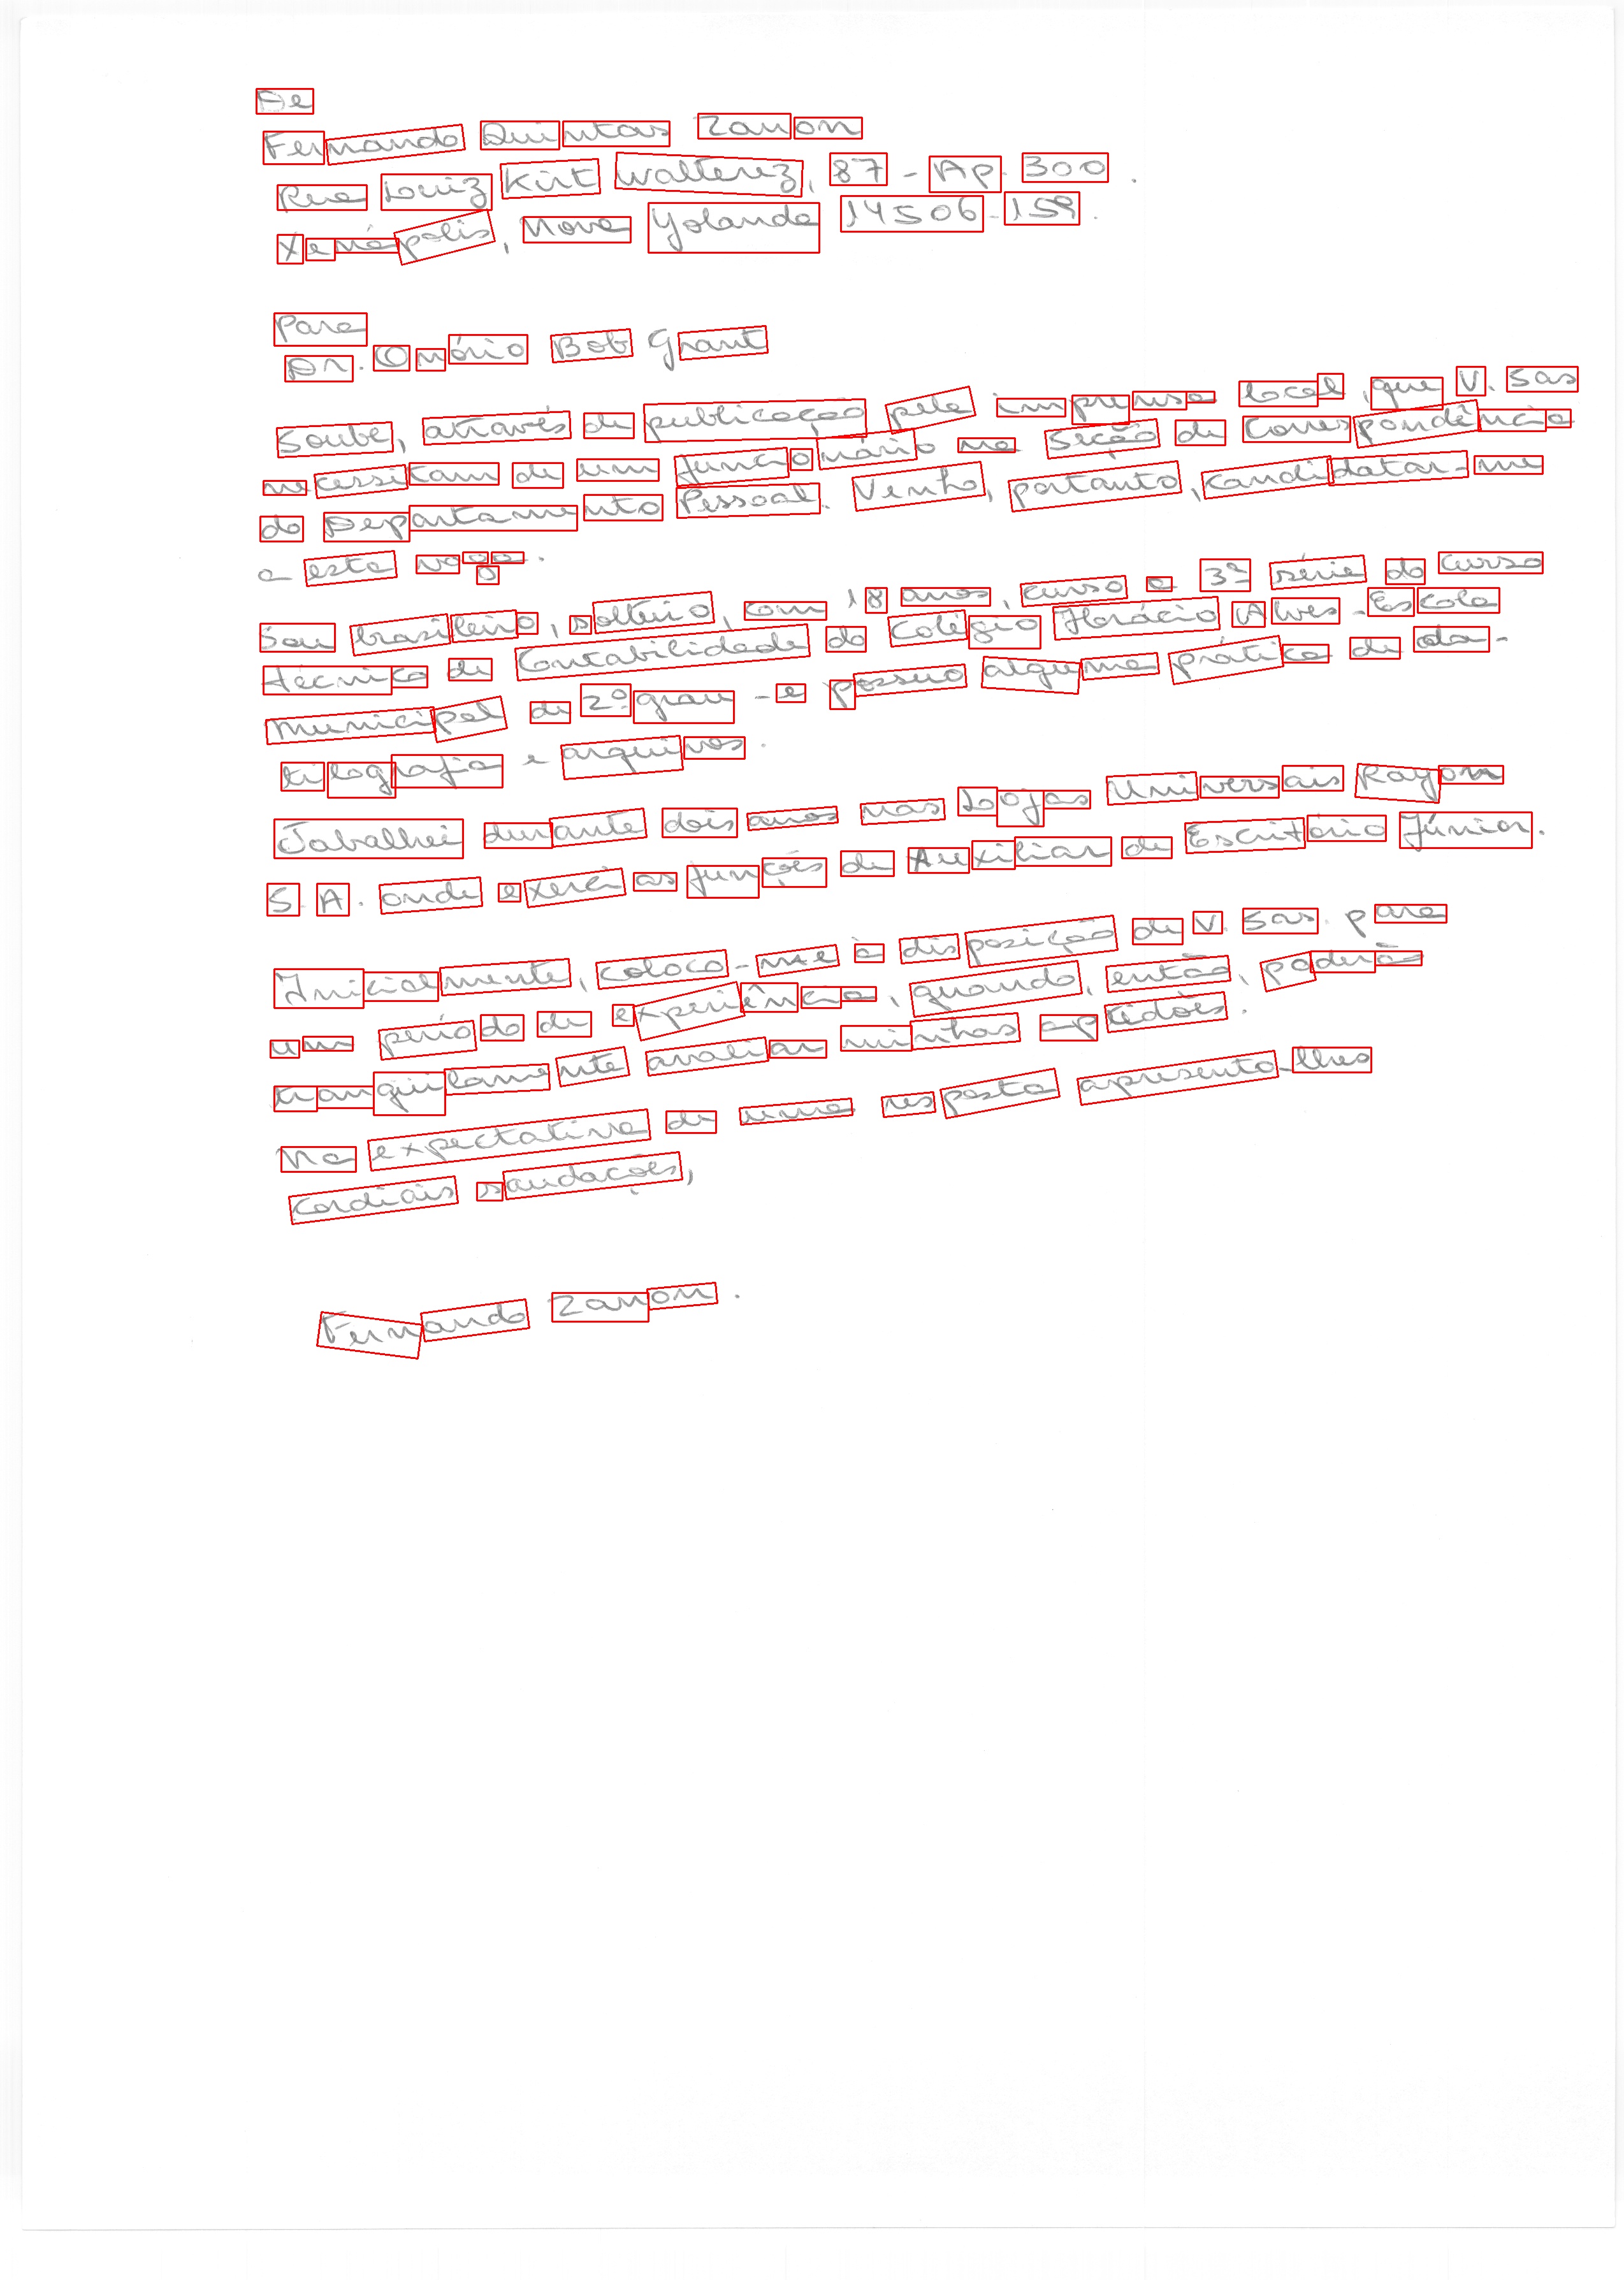 De
Fernando Quintas Zanon
Rua Luiz Kirt Walterez, 87 - Ap. 300.
Xenépolis, Nova Yolanda 14506-159.
Para
Dr. Onório Bob Grant
Soube, através de publicação pela imprensa local, que V. Sas
necessitam de um funcionário na Seção de Correspondência
do Departamento Pessoal. Venho, portanto, candidatar-me
a esta vaga.
Sou brasileiro, solteiro, com 18 anos, curso a 3ª série do curso
técnico de Contabilidade do Colégio Horácio Alves - Escola
Municipal de 2º grau - e possuo alguma prática de da-
tilografia e arquivos.
Tabalhei durante dois anos nas Lojas Universais Rayon
S. A. onde exerci as funções de Auxiliar de Escritório Júnior.
Inicialmente, coloco-me à disposição de V. Sas. para
um período de experiência, quando, então, poderão
tranqüilamente avaliar minhas aptidões.
Na expectativa de uma resposta apresento-lhes
cordiais saudações,
Fernando Zanon.